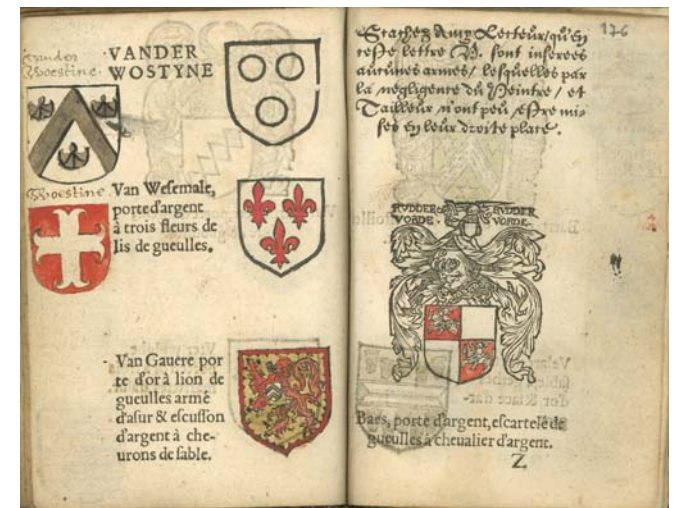 Vander
Woestine.
VANDER
WOSTYNE
Woestine.
Van Wesemale,
porte d'argent
à trois fleurs de
lis de gueulles.
Van Gauere por
te d'or à lion de
gueulles armé
d'asur & escusson
d'argent à che-
urons de sable.
176
Scachez Amy Lecteur/qu'en
ceste lettre V. sont inserees
aucunes armes/ lesquelles par
la negligence du Peintre/ et
Tailleur n'ont peu estre mi-
ses en leur droite place.
RVDDER RVDDER
VORDE. VORDE.
Baes, porte d'argent, escartelé de
gueulles à cheualier d'argent.
Z